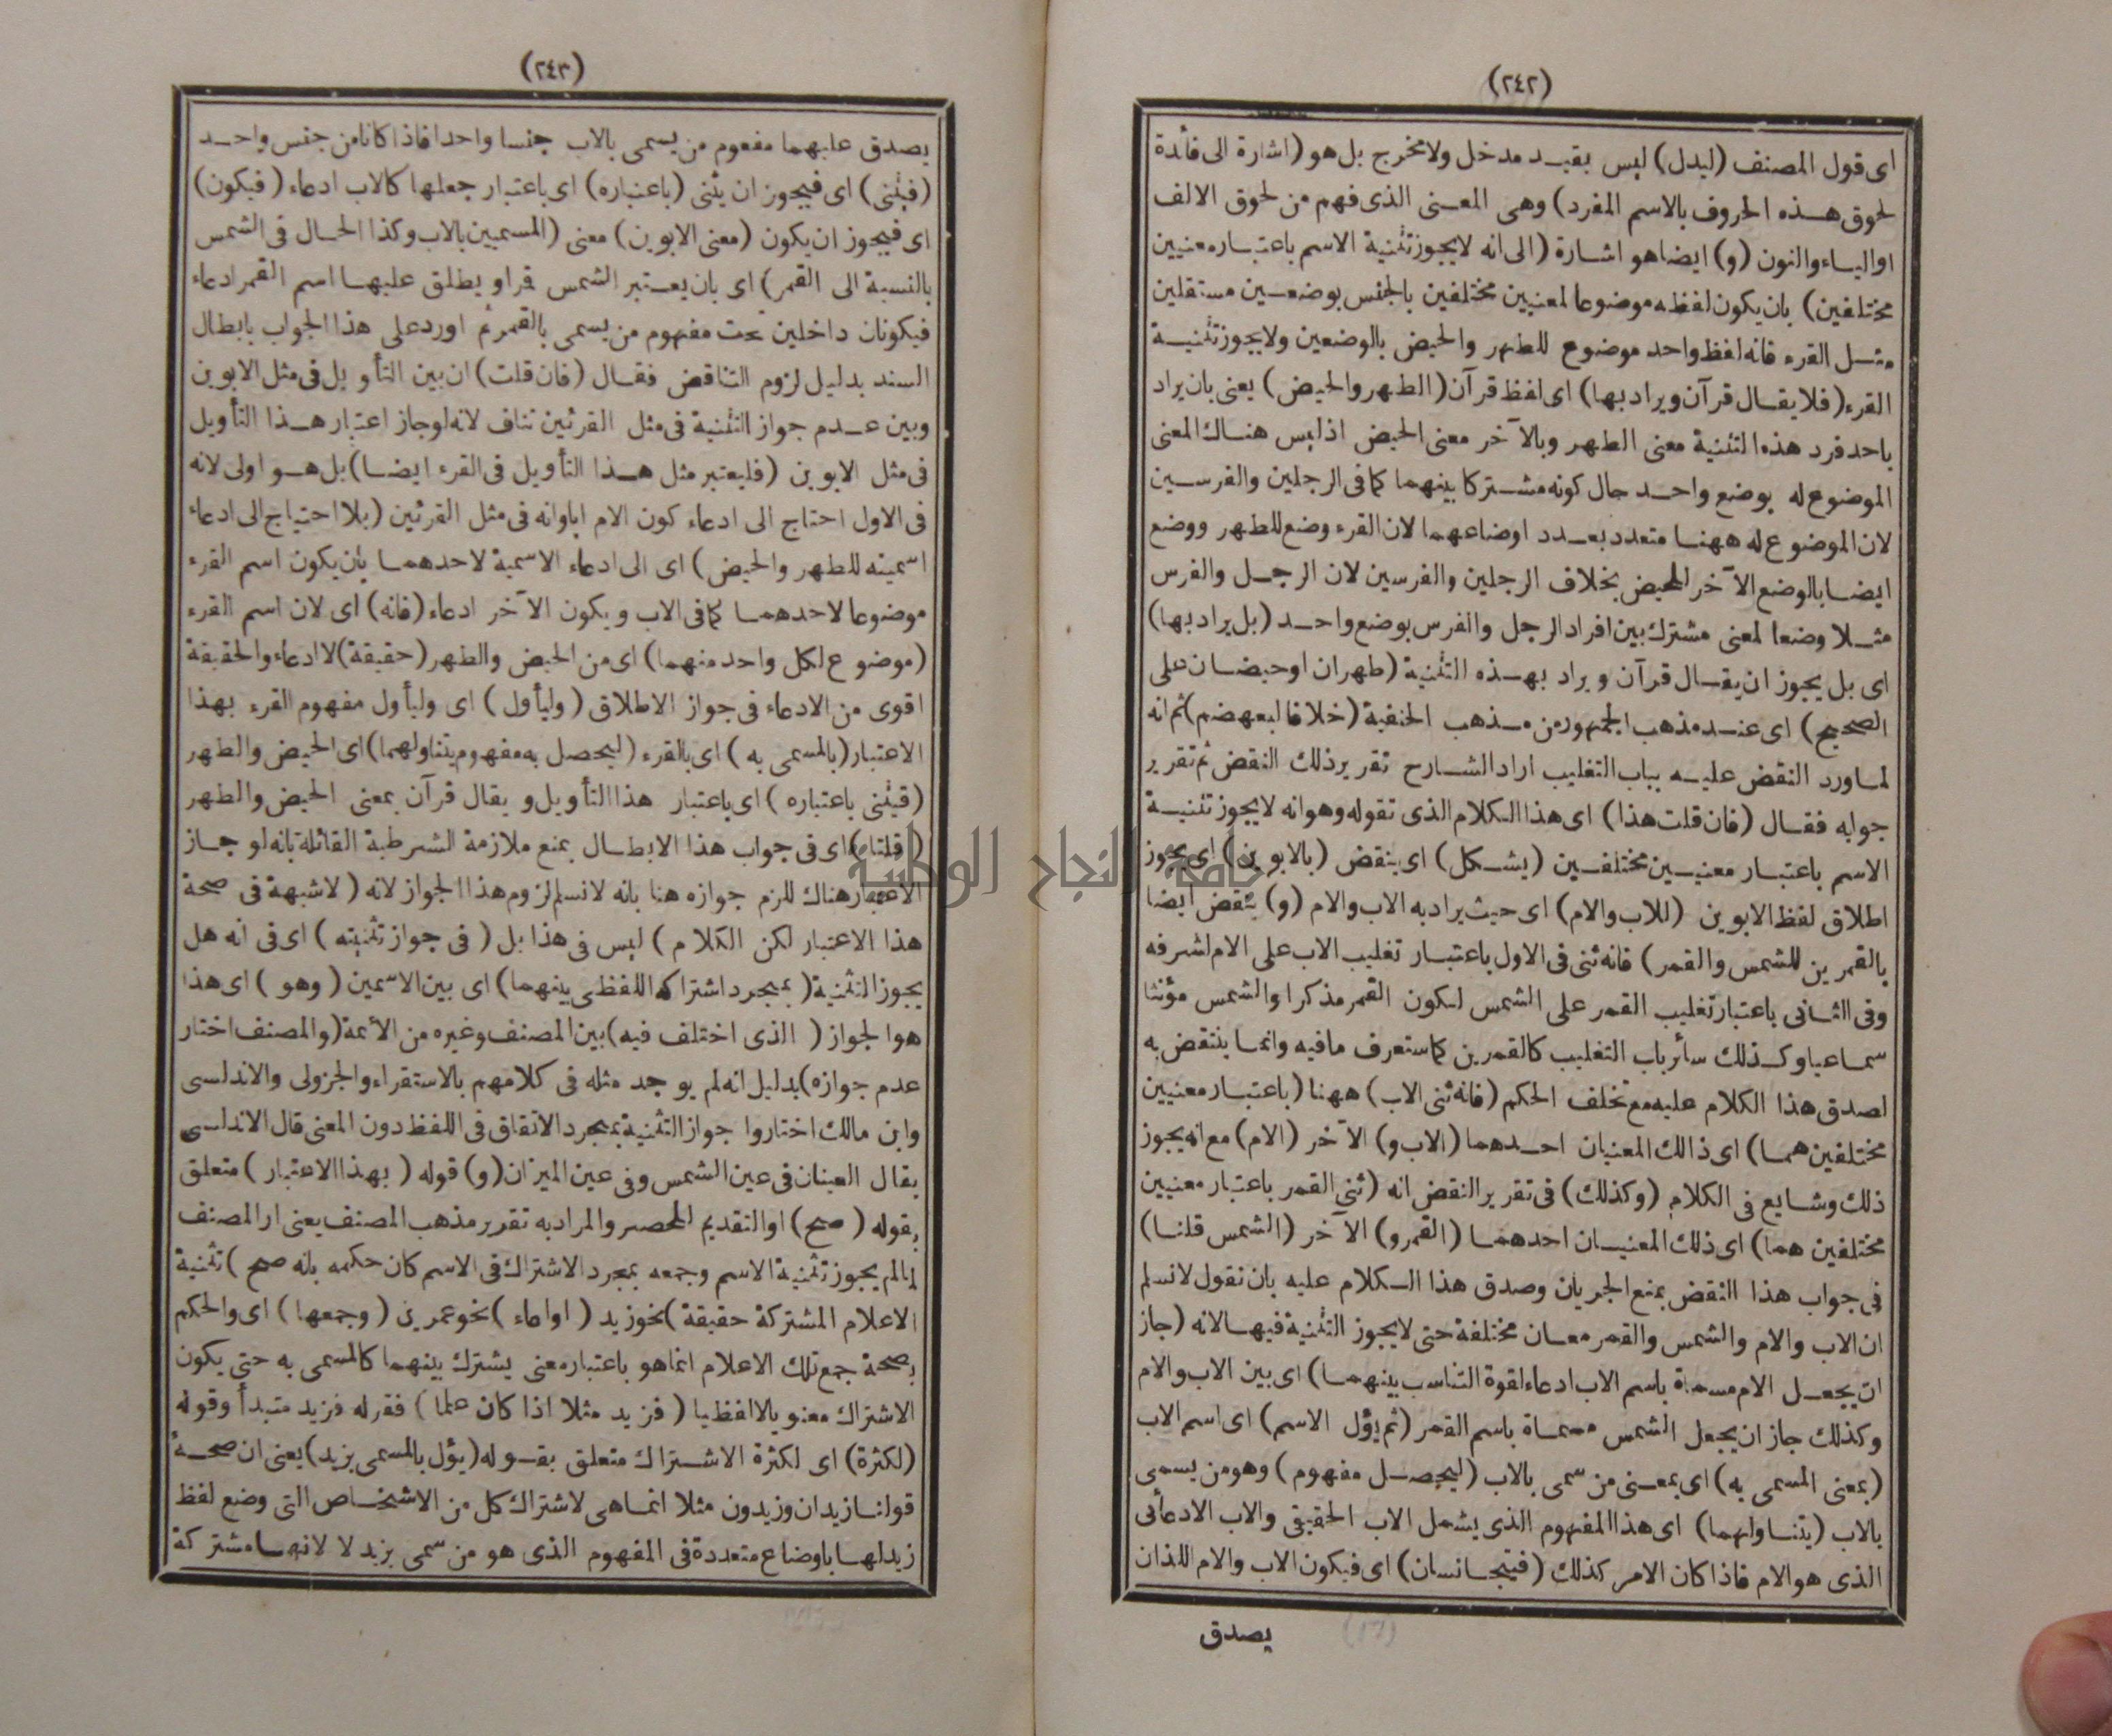 (٢٤٢)
اى قول المصنف (ليدل) ليس بقيد مدخل ولا مخرج بل هو (اشارة الى فائدة
لحوق هذه الحروف بالاسم المفرد) وهى المعنى الذى فهم من لحوق الالف
او الياء والنون (و) ايضا هو اشارة (الى انه لا يجوز تثنية الاسم باعتبار معنيين
مختلفين) بان يكون لفظه موضوعا لمعنيين مختلفين بالجنس بوضعين مستقلين
مثل القرء فانه لفظ واحد موضوع للطهر والحيض بالوضعين ولا يجوز تثنية
القرء (فلا يقال قرآن ويراد بها) اى لفظ قرآن (الطهر والحيض) يعنى بان يراد
باحد فرد هذه التثنية معنى الطهر وبالآخر معنى الحيض اذ ليس هناك المعنى
الموضوع له بوضع واحد حال كونه مشتركا بينهما كما فى الرجلين والفرسين
لان الموضوع له ههنا متعدد بعدد اوضاعهما لان القرء وضع للطهر ووضع
ايضا بالوضع الآخر للحيض بخلاف الرجلين والفرسين لان الرجل والفرس
مثلا وضعا لمعنى مشترك بين افراد الرجل والفرس بوضع واحد (بل يراد بها)
اى بل يجوز ان يقال قرآن ويراد بهذه التثنية (طهران او حيضان على
الصحيح) اى عند مذهب الجمهور من مذهب الحنفية (خلافا لبعهضم) ثم انه
لما ورد النقض عليه بباب التغليب اراد الشارح تقرير ذلك النقض ثم تقرير
جوابه فقال (فان قلت هذا) اى هذا الكلام الذى تقوله وهو انه لا يجوز تثنية
الاسم باعتبار معنيين مختلفين (يشكل) اى ينقض (بالابوين) اى يجوز
اطلاق لفظ الابوين (للاب والام) اى حيث يراد به الاب والام (و) ينقض ايضا
بالقمرين للشمس والقمر) فانه ثنى فى الاول باعتبار تغليب الاب على الام لشرفه
وفى الثانى باعتبار تغليب القمر على الشمس لكون القمر مذكرا والشمس مؤنثا
سماعيا وكذلك سائر باب التغليب كالقمرين كما ستعرف ما فيه وانما ينتقض به
لصدق هذا الكلام عليه مع تخلف الحكم (فانه ثنى الاب) ههنا (باعتبار معنيين
مختلفين هما) اى ذالك المعنيان احدهما (الاب و) الآخر (الام) مع انه يجوز
ذلك وشايع فى الكلام (وكذلك) فى تقرير النقض انه (ثنى القمر باعتبار معنيين
مختلفين هما) اى ذلك المعنيان احدهما (القمر و) الآخر (الشمس قلنا)
فى جواب هذا النقض بمنع الجريان وصدق هذا الكلام عليه بان نقول لا نسلم
ان الاب والام والشمس والقمر معان مختلفة حتى لا يجوز التثنية فيها لانه (جاز
ان يجعل الام مسماة باسم الاب ادعاء لقوة التناسب بينهما) اى بين الاب والام
وكذلك جاز ان يجعل الشمس مسماة باسم القمر (ثم يؤل الاسم) اى اسم الاب
(بمعنى المسمى به) اى بمعنى من سمى بالاب (ليحصل مفهوم) وهو من يسمى
بالاب (يتناولهما) اى هذا المفهوم الذى يشمل الاب الحقيقى والاب الادعائى
الذى هو الام فاذا كان الامر كذلك (فيتجانسان) اى فيكون الاب والام اللذان
يصدق
(٢٤٣)
يصدق عليهما مفعوم من يسمى بالاب جنسا واحدا فاذا كانا من جنس واحد
(فيثنى) اى فيجوز ان يثنى (باعتباره) اى باعتبار جعلها كالاب ادعاء (فيكون)
اى فيجوز ان يكون (معنى الابوين) معنى (المسميين بالاب وكذا الحال فى الشمس
بالنسبة الى القمر) اى بان يعتبر الشمس قمرا ويطلق عليها اسم القمر ادعاء
فيكونان داخلين تحت مفهوم من يسمى بالقمر ثم اورد على هذا الجواب بابطال
السند بدليل لزوم التناقض فقال (فان قلت) ان بين التأويل فى مثل الابوين
وبين عدم جواز التثنية فى مثل القرئين تناف لانه لو جاز اعتبار هذا التأويل
فى مثل الابوين (فليعتبر مثل هذا التأويل فى القرء ايضا) بل هو اولى لانه
فى الاول احتاج الى ادعاء كون الام ابا وانه فى مثل القرئين (بلا احتياج الى ادعاء
اسميته للطهر والحيض) اى الى ادعاء الاسمية لاحدهما بان يكون اسم القرء
موضوعا لاحدهما كما فى الاب ويكون الآخر ادعاء (فانه) اى لان اسم القرء
(موضوع لكل واحد منهما) اى من الحيض والطهر (حقيقة) لا ادعاء والحقيقة
اقوى من الادعاء فى جواز الاطلاق (وليأول) اى وليأول مفهوم القرء بهذا
الاعتبار (بالمسمى به) اى بالقرء (ليحصل به مفهوم يتناولهما) اى الحيض والطهر
(فيثنى باعتباره) اى باعتبار هذا التأويل ويقال قرآن بمعنى الحيض والطهر
(قلنا) اى فى جواب هذا الابطال بمنع ملازمة الشرطية القائلة بانه لو جاز
الاعتبار هناك للزم جوازه هنا بانه لا نسلم لزوم هذا الجواز لانه (لا شبهة فى صحة
هذا الاعتبار لكن الكلام) ليس فى هذا بل (فى جواز تثنيته) اى فى انه هل
يجوز التثنية (بمجرد اشتراك اللفظى بينهما) اى بين الاسمين (وهو) اى هذا
هو الجواز (الذى اختلف فيه) بين المصنف وغيره من الأئمة (والمصنف اختار
عدم جوازه) بدليل انه لم يوجد مثله فى كلامهم بالاستقراء والجزولى والاندلسى
وابن مالك اختاروا جواز التثنية بمجرد الاتفاق فى اللفظ دون المعنى قال الاندلسى
يقال العينان فى عين الشمس وفى عين الميزان (و) قوله (بهذا الاعتبار) متعلق
بقوله (صح) او التقديم للحصر والمراد به تقرير مذهب المصنف يعنى ان المصنف
لما لم يجوز تثنية الاسم وجمعه بمجرد الاشتراك فى الاسم كان حكمه بانه صح) تثنية
الاعلام المشتركة حقيقة) نحو زيد (او ادعاء) نحو عمرين (وجمعها) اى والحكم
بصحة جمع تلك الاعلام انما هو باعتبار معنى يشترك بينهما كالمسمى به حتى يكون
الاشتراك معنويا لا لفظيا (فزيد مثلا اذا كان علما) فقوله فزيد مبتدأ وقوله
(لكثرة) اى لكثرة الاشتراك متعلق بقوله (يؤل بالمسمى بزيد) يعنى ان صحة
قولنا زيدان وزيدون مثلا انما هى لاشتراك كل من الاشخاص التى وضع لفظ
زيد لها باوضاع متعددة فى المفهوم الذى هو من سمى بزيد لا لانها مشتركة
جامعة النجاح الوطنية